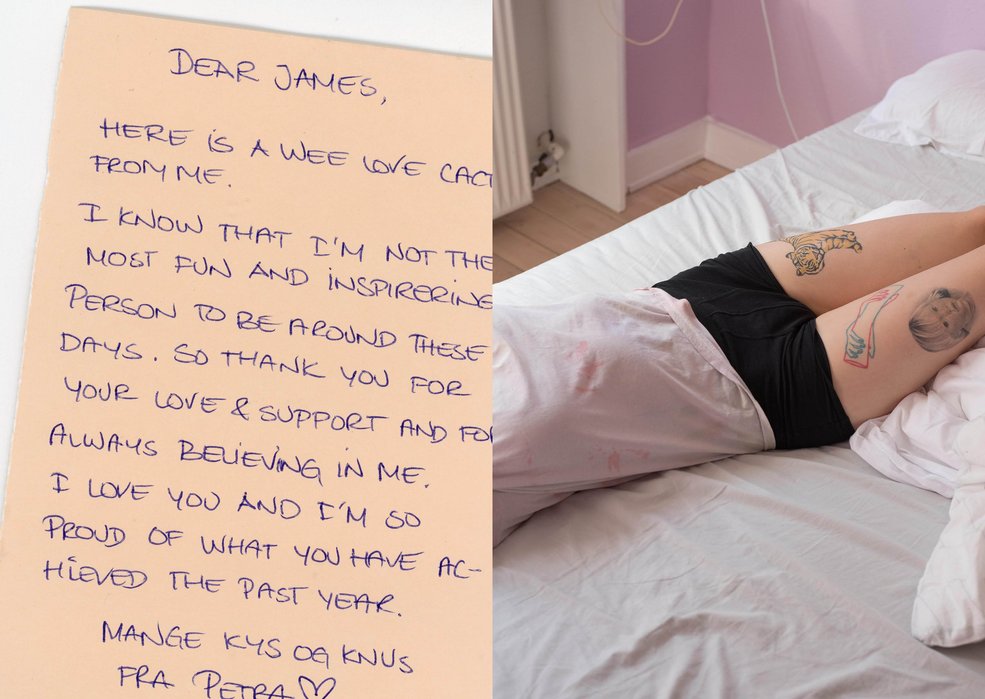 DEAR JAMES,
HERE IS A WEE LOVE
FROM ME.
I KNOW THAT I'M NOT THE
MOST FUN AND INSPIRERING
PERSON TO BE AROUND THESE
DAYS. SO THANK YOU FOR
YOUR LOVE & SUPPORT AND FOR
ALWAYS BELIEVING IN ME.
I LOVE YOU AND I'M SO
PROUD OF WHAT YOU HAVE AC-
HIEVED THE PAST YEAR.
MANGE KYS OG KNUS
FRA PETRA♡